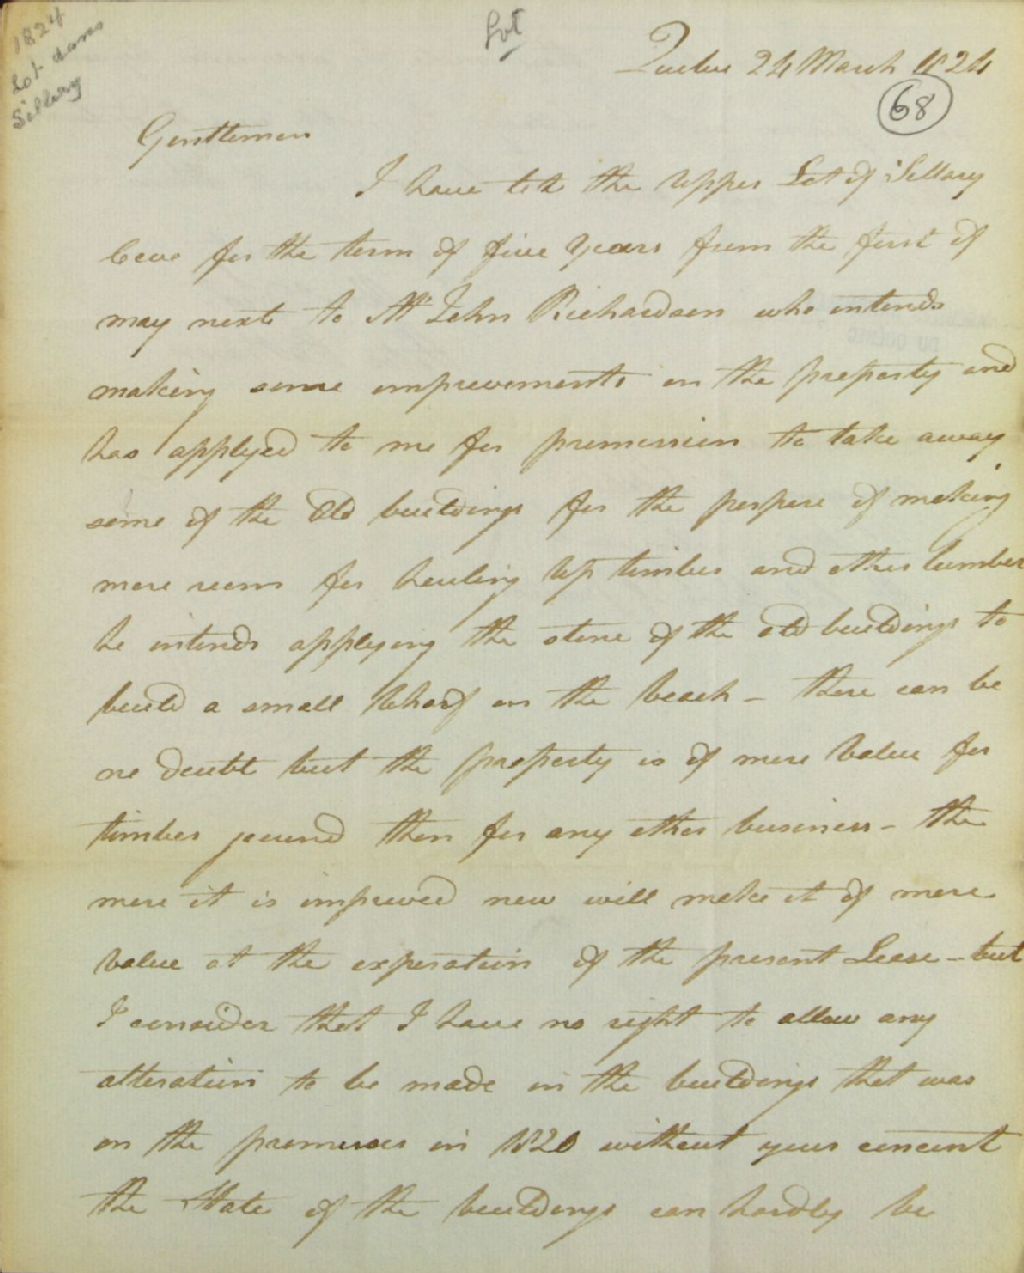 1824
Lot dans
Sillery
Lot
Quebec 24 March 1824
68
Gentlemen
I have let the Upper Lot of Sillary
Cove for the term of five Years from the first of
may next to Mr John Richardson who intends
making some improvements on the property and
has applyed to me for premission to take away
some of the Old buildings for the perpose of making
more room for hauling Up timber and other lumber
he intends applying the stone of the old buildings to
build a small Wharf on the beach - there can be
no doubt but the property is of more Value for
timber ground then for any other business - the
more it is improved now will make it of more
Value at the experation of the present Lease - but
I consider that I have no right to allow any
alteration to be made in the buildings that was
on the premises in 1820 without your concent
the State of the buildings can hardly be